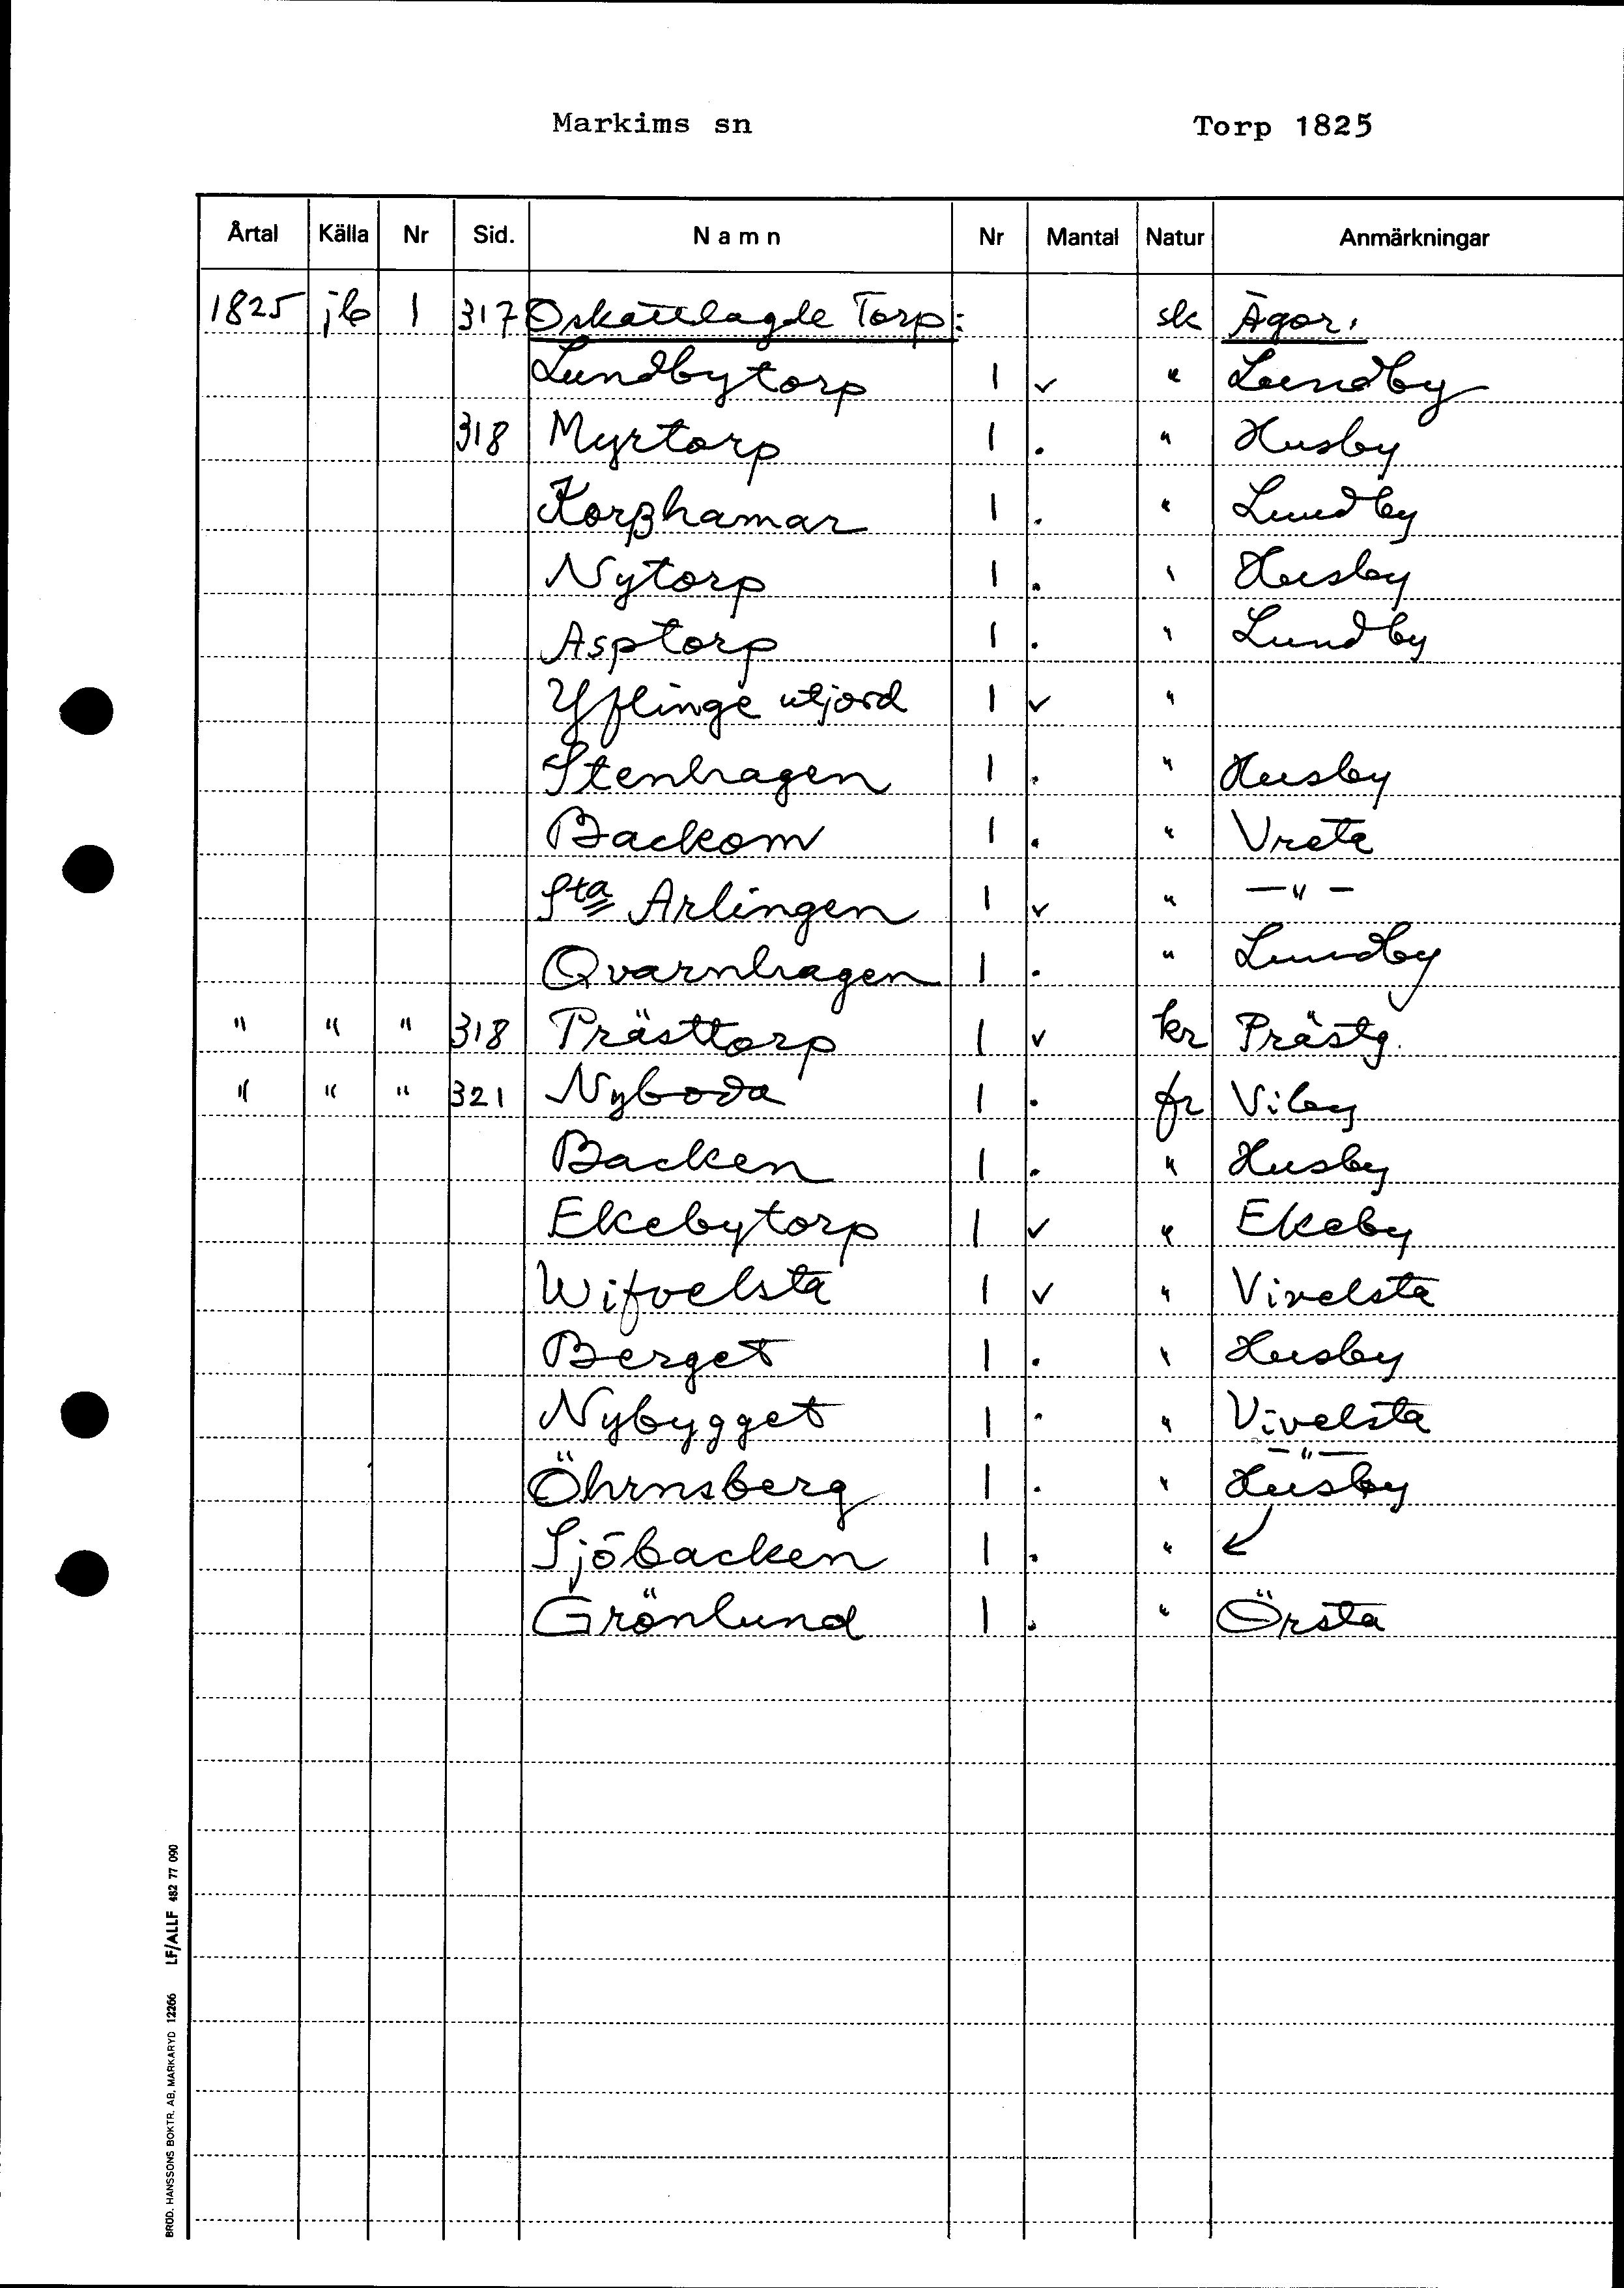 Markims sn Torp 1825
Årtal Källa Nr Sid. Namn Nr Mantal Natur Anmärkningar
1825 jb 1 317 Oskattlagde Torp: sk Ägor:
Lundbytorp 1 ✓ " Lundby
318 Myrtorp 1 . " Husby
Korßhamar 1 . " Lundby
Nytorp 1 . " Husby
Asptorp 1 . " Lundby
Yflinge utjord 1 ✓ "
Stenhagen 1 . " Husby
Backom 1 . " Vreta
Sta Arlingen 1 ✓ " —"—
Qvarnhagen 1 . " Lundby
" " " 318 Prästtorp 1 ✓ kr Prästg.
" " " 321 Nyboda 1 . fr Viby
Backen 1 . " Husby
Ekebytorp 1 ✓ " Ekeby
Wifvelsta 1 ✓ " Vivelsta
Berget 1 . " Husby
Nybygget 1 . " Vivelsta
—"—
Öhrnsberg 1 . " Husby
Sjöbacken 1 . " ↙
Grönlund 1 . " Örsta
BRÖD. HANSSONS BOKTR. AB, MARKARYD 12266 LF/ALLF 482 77 090